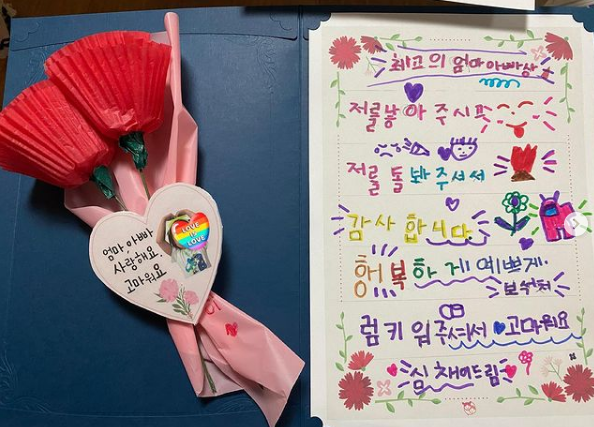 엄마, 아빠
사랑해요.
고마워요
LOVE
IS
LOVE
최고의 엄마아빠상
저를낳아
저를 돌봐주셔서
감사 합니다.
행복하게 예쁘게.
키 워주셔서 고마워요